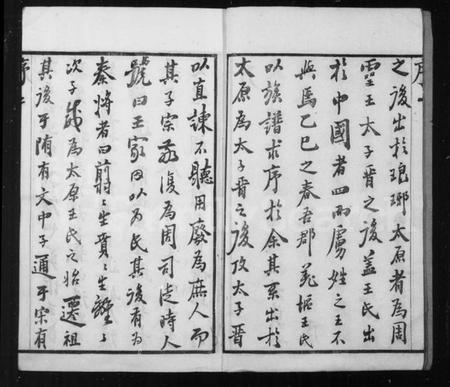 之後出於琅琊太原者為周
靈王太子晉之後蓋王氏出
於中國者四而虜姓之王不
與焉乙巳之春吾郡 王氏
以族譜求序於余其系出於
太原為太子晉之後攷太子晉
以直諫不聽用廢為庶人而
其子宗敬復為周司徒時人
號曰王家因以為氏其後有為
秦將者曰翦翦生賁賁生離離
次子威為太原王氏之始遷祖
其後于隋有文中子通于宋有
序